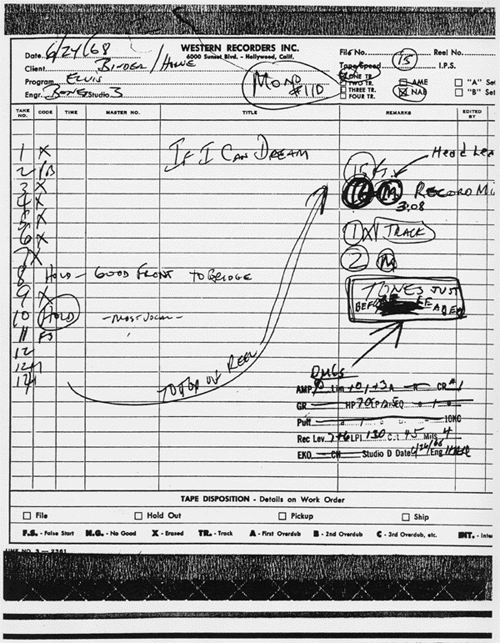 WESTERN RECORDERS INC.
6000 Sunset Blvd. - Hollywood, Calif.
Date 6/24/68
Client BINDER / HOWE
Program ELVIS
Engr. BONES Studio 3
MONO #110
File No. Reel No.
Tape Speed 15 I.P.S.
ONE TR.
TWO TR.
THREE TR.
FOUR TR.
AME
NAB
"A" Se
"B" Se
TAKE NO. CODE TIME MASTER NO. TITLE REMARKS EDITED BY
1 X IF I CAN DREAM
Head Lea
2
15
3 X
M RECORD MI
4 X
3:08
5 X
6 X
1 X TRACK
7 X
2 M
8 HOLD - GOOD FRONT TO BRIDGE
9 X
TONES JUST
10 HOLD - MOST VOCAL -
BEF
11 FS
12
TO TOP OF REEL
DMGS
AMP CR #1
GR HP EQ
Puff 10KC
Rec Lev. LPI 130 Mils 4
EKO CH Studio D Date Eng
TAPE DISPOSITION - Details on Work Order
File Hold Out Pickup Ship
F.S. - False Start N.G. - No Good X - Erased TR. - Track A - First Overdub B - 2nd Overdub C - 3rd Overdub, etc. INT. - Inter